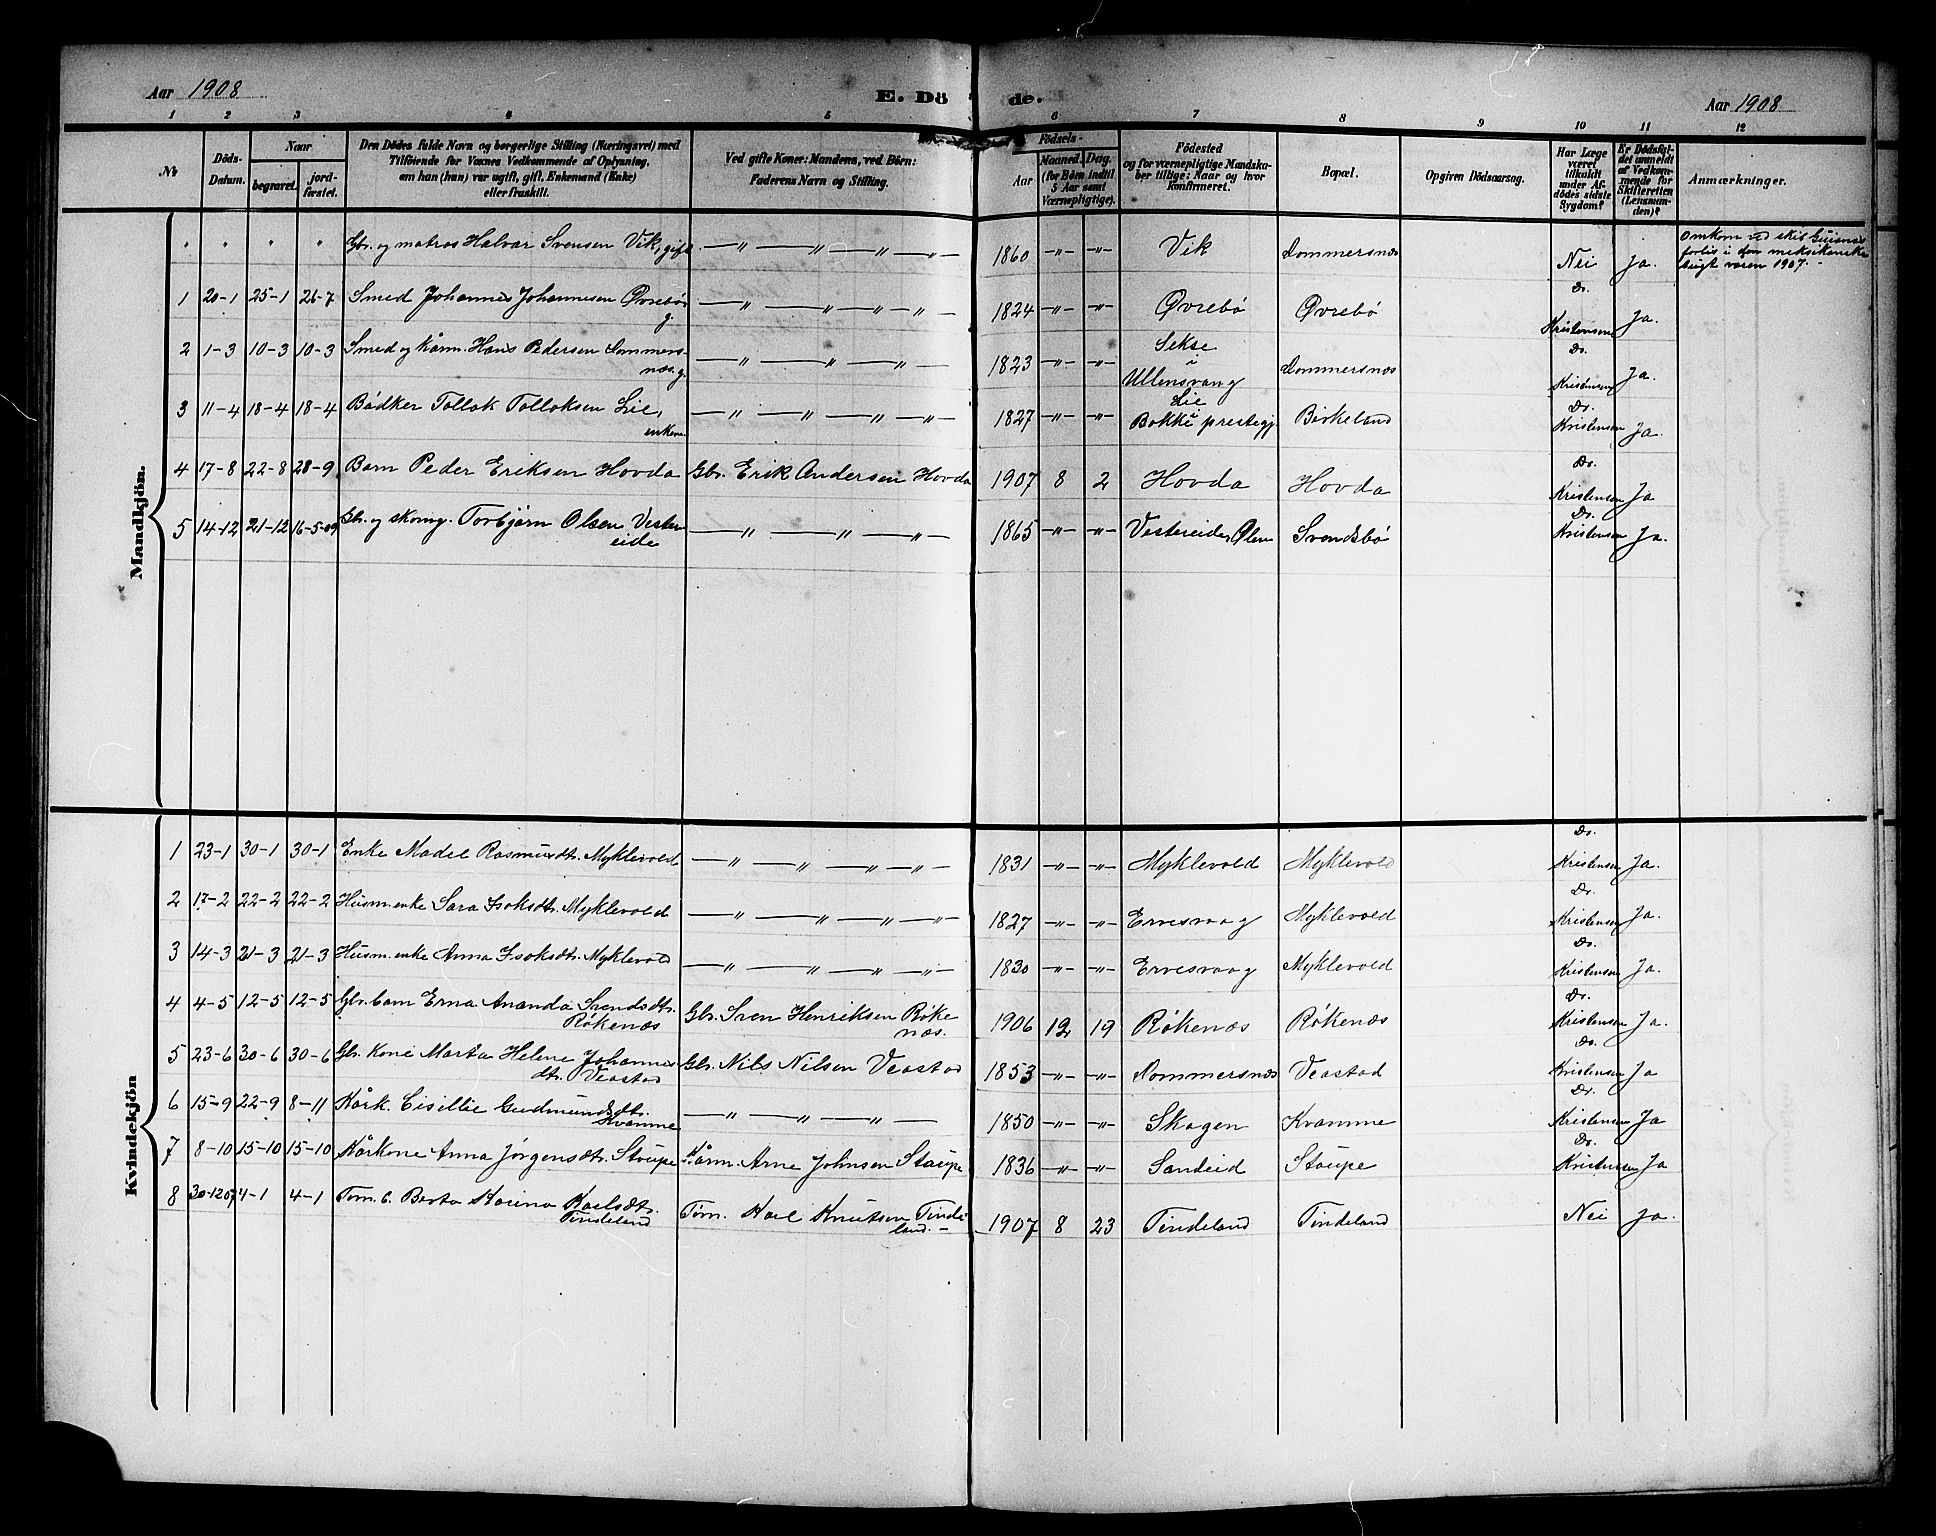 Aar 1908
E. Dö de.
Aar 1908
1 2 3 4 5 6 7 8 9 10 11 12
No
Döds-
Datum.
Naar
begravet.
jord-
fæstet.
Den Dödes fulde Navn og borgerlige Stilling (Næringsvei) med
Tilföiende for Voxnes Vedkommende af Oplysning,
om han (hun) var ugift, gift, Enkemand (Enke)
eller fraskilt.
Ved gifte Koner: Mandens, ved Börn:
Faderens Navn og Stilling.
Födsels-
Aar
Maaned. Dag.
(for Börn indtil
5 Aar samt
Værnepligtige).
Födested
og for værnepligtige Mandska-
ber tillige: Naar og hvor
konfirmeret.
Bopæl.
Opgiven Dödsaarsag.
Har Læge
været
tilkaldt
under Af-
dödes sidste
Sygdom?
Er Dödsfal-
det anmeldt
af Vedkom-
mende for
Skifteretten
(Lensman-
den)?
Anmærkninger.
Mandkjön.
" " " " Gbr. og matros Halvar Svensen Vik, gift — " — " — " — " — 1860 — " — — " — Vik Sommersnæs Nei Ja.
Omkom ved skib
forlis i den meksikanske
bugt våren 1907. -
1 20-1 25-1 26-7 Smed Johannes Johannesen Øvrebø
g. — " — " — " — " — 1824 — " — — " — Øvrebø Øvrebø Dr.
Kristensen Ja.
2 1-3 10-3 10-3 Smed og kårm. Hans Pedersen Sommers-
næs. g. — " — " — " — 1823 — " — — " — Sekse
i
Ullensvang Sommersnæs Dr.
Kristensen Ja.
3 11-4 18-4 18-4 Bødker Tollak Tollaksen Lie,
enkem. — " — " — " — " — 1827 — " — — " — Lie
i
Bakke prestegj. Birkeland Dr.
Kristensen Ja.
4 17-8 22-8 28-9 Barn Peder Eriksen Hovda Gbr. Erik Andersen Hovda 1907 8 2 Hovda Hovda Dr.
Kristensen Ja
5 14-12 21-12 16-5-09 Gbr. og skomg. Torbjørn Olsen Vester-
eide — " — " — " — " — 1865 — " — — " — Vestereide, Ølen Svendsbø Dr.
Kristensen Ja.
Kvindekjön
1 23-1 30-1 30-1 Enke Madel Rasmusdtr. Myklevold — " — " — " — " — 1831 — " — — " — Myklevold Myklevold Dr.
Kristensen Ja.
2 17-2 22-2 22-2 Husm.enke Sara Isaksdtr. Myklevold — " — " — " — " — 1827 — " — — " — Ervesvaag Myklevold Dr.
Kristensen Ja.
3 14-3 21-3 21-3 Husm.enke Anna Isaksdtr. Myklevold — " — " — " — " — 1830 — " — — " — Ervesvaag Myklevold Dr.
Kristensen Ja.
4 4-5 12-5 12-5 Gbr.barn Erna Ananda Svendsdtr.
Røkenæs Gbr. Sven Henriksen Røke
næs. 1906 12 19 Røkenæs Røkenæs Dr.
Kristensen Ja.
5 23-6 30-6 30-6 Gbr. kone Marta Helene Johannes
dtr. Veastad Gbr. Nils Nilsen Veastad 1853 — " — — " — Sommersnæs Veastad Dr.
Kristensen Ja
6 15-9 22-9 8-11 Kårk. Cisillie Gudmundsdtr.
Kvamme — " — " — " — 1850 — " — — " — Skogen Kvamme Dr.
Kristensen Ja
7 8-10 15-10 15-10 Kårkone Anna Jørgensdtr. Stoupe Kårm. Arne Johnsen Stoupe 1836 — " — — " — Sandeid Stoupe Dr.
Kristensen Ja
8 30-12 07 4-1 4-1 Tøm. b. Berta Karina Karlsdtr.
Tindeland Tøm. Karl Knutsen Tinde
land. - 1907 8 23 Tindeland Tindeland Nei Ja.